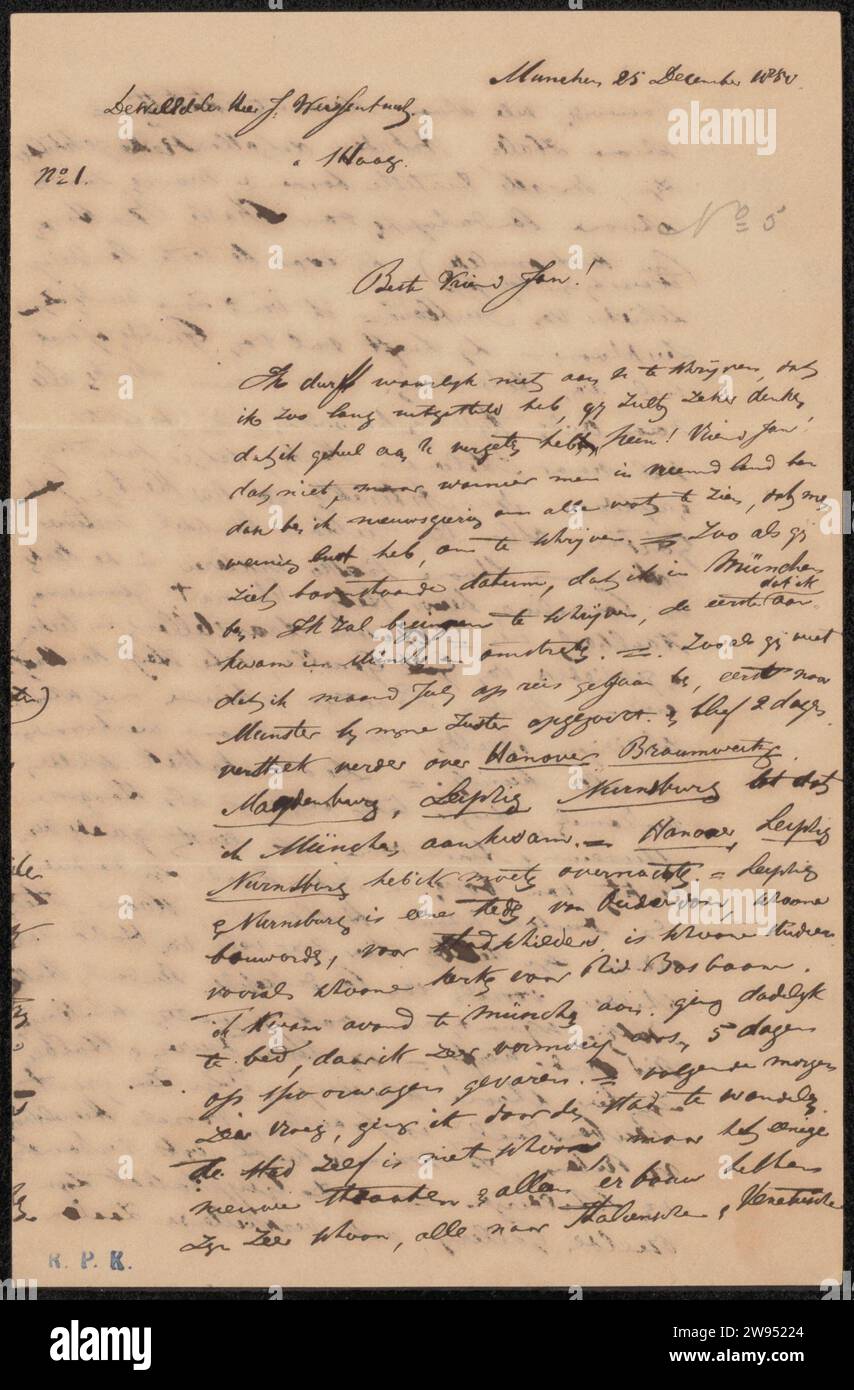 München 25 December 1850.
Heer J. Weissenbruch.
Haag.
No 1.
No 5
Beste Vriend Jan!
Ik durf waarlyk niet aan U te schrijven, dat
ik zoo lang uitgesteld heb, gy zult zeker denken
dat ik geheel aan U vergeten heb, Neen! Vriend Jan!
dat niet, maar wanneer men in vreemd land
dan ben ik nieuwsgierig om alles wat te zien, dat men
weinig lust heb, om te schrijven. = Zoo als gy
ziet bovenstaande datum, dat ik in München
dat ik
ben. Ik zal beginnen te schrijven, de eerste aan-
kwam in München omstreeks. = Zoo als gy weet
dat ik maand July op reis gegaan ben, eerst naar
Munster by myne Zuster opgezocht. & bleef 2 dagen
vertrek verder over Hanover Braunweitz
Magdenburg, Leipzig Nurnsburg tot dat
ik München aankwam. = Hanover, Leipzig
Nurnsburg heb ik moeten overnachten. = Leipzig
& Nurnsburg is eene stad, van ouder voor, schoone
bouworde, voor is schoone studien
vooral schoone kerk voor Bosboom.
ik kwam avond te München aan. ging dadelyk
te bed, daar ik zeer vermoeid was, 5 dagen
op spoorwagen gevaren. = volgende morgen
zeer vroeg, ging ik door de stad te wandelen
de stad zelf is niet schoon maar het eenige
nieuwe straaten & allen
zyn zeer schoon, alle naar Italiensche & Venetische
R. P. K.
alamy
2W95224
alamy
Image ID: 2W95224
www.alamy.com